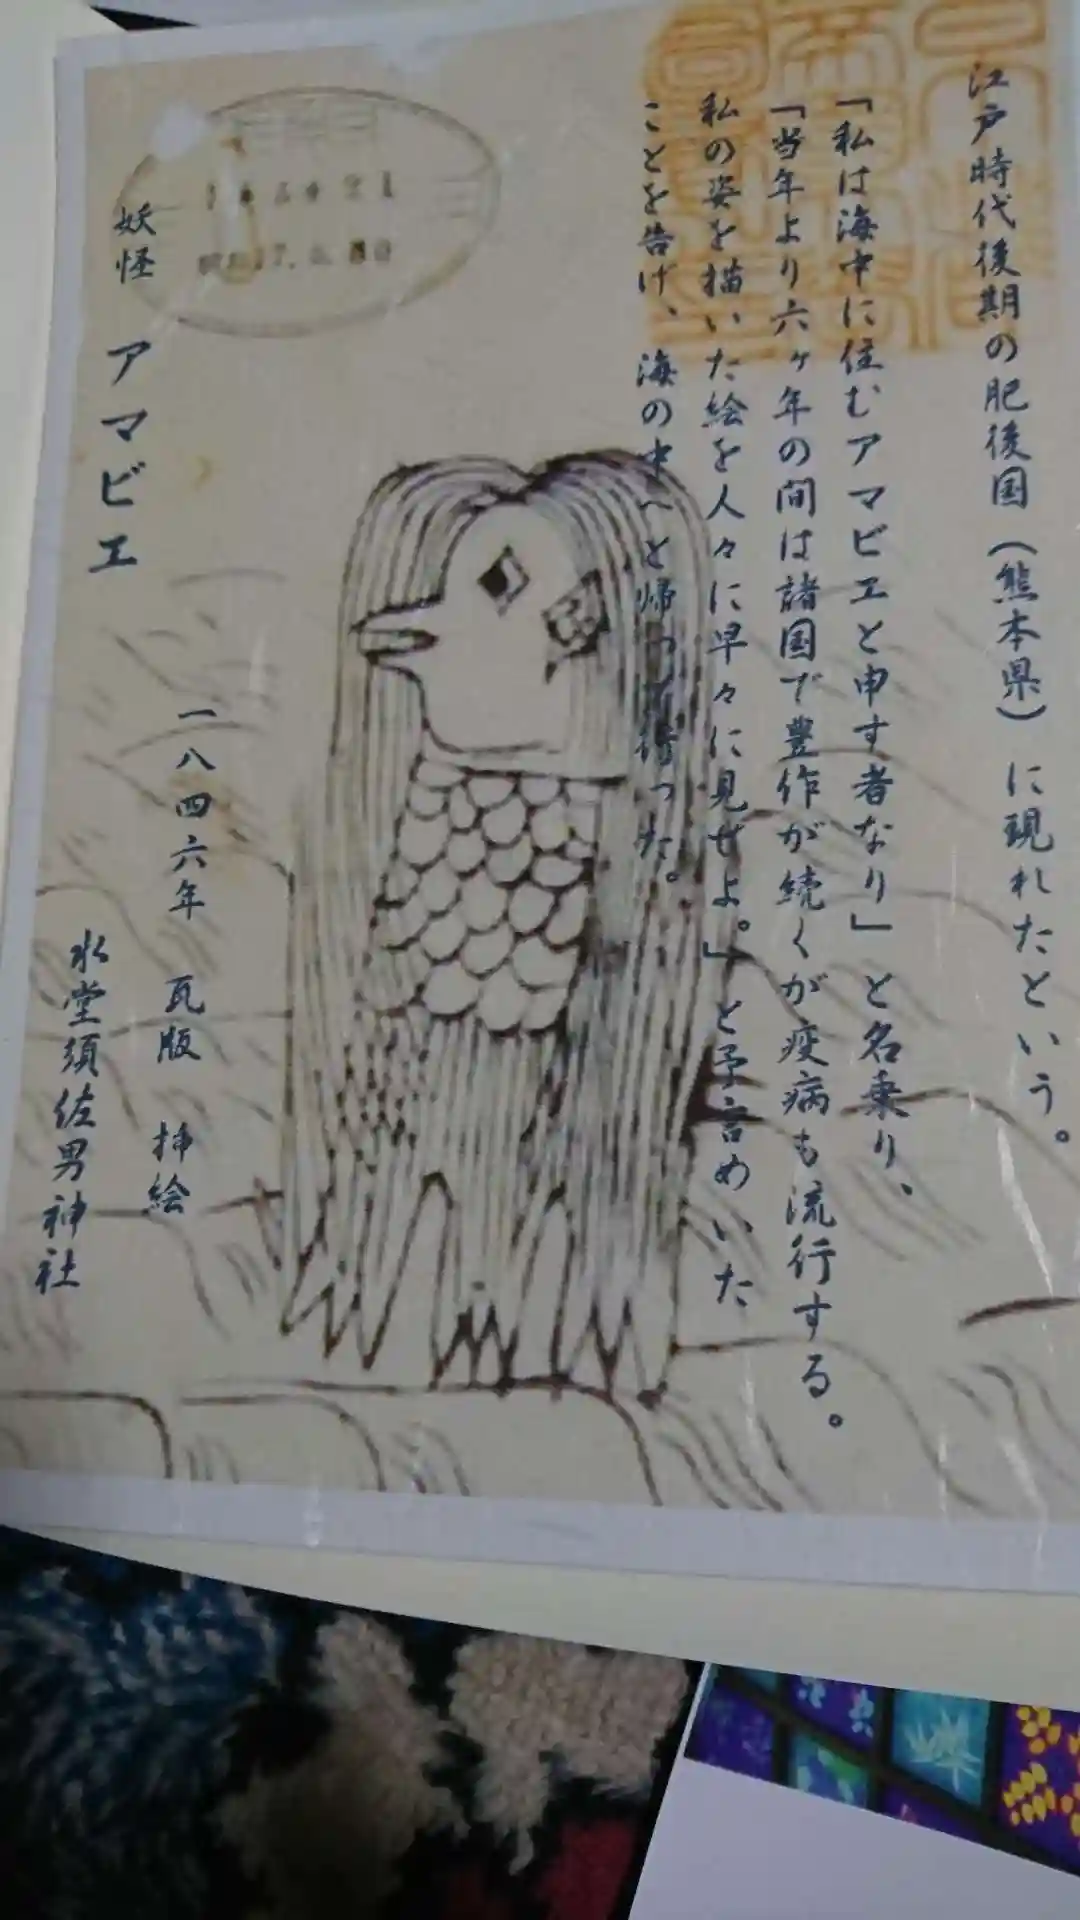 江戸時代後期の肥後国（熊本県）に現れたという。
「私は海中に住むアマビエと申す者なり」と名乗り、
「当年より六ヶ年の間は諸国で豊作が続くが疫病も流行する。
私の姿を描いた絵を人々に早々に見せよ。」と予言めいた
ことを告げ、海の中へと帰って行った。
妖怪 アマビエ
一八四六年 瓦版 挿絵
水堂須佐男神社